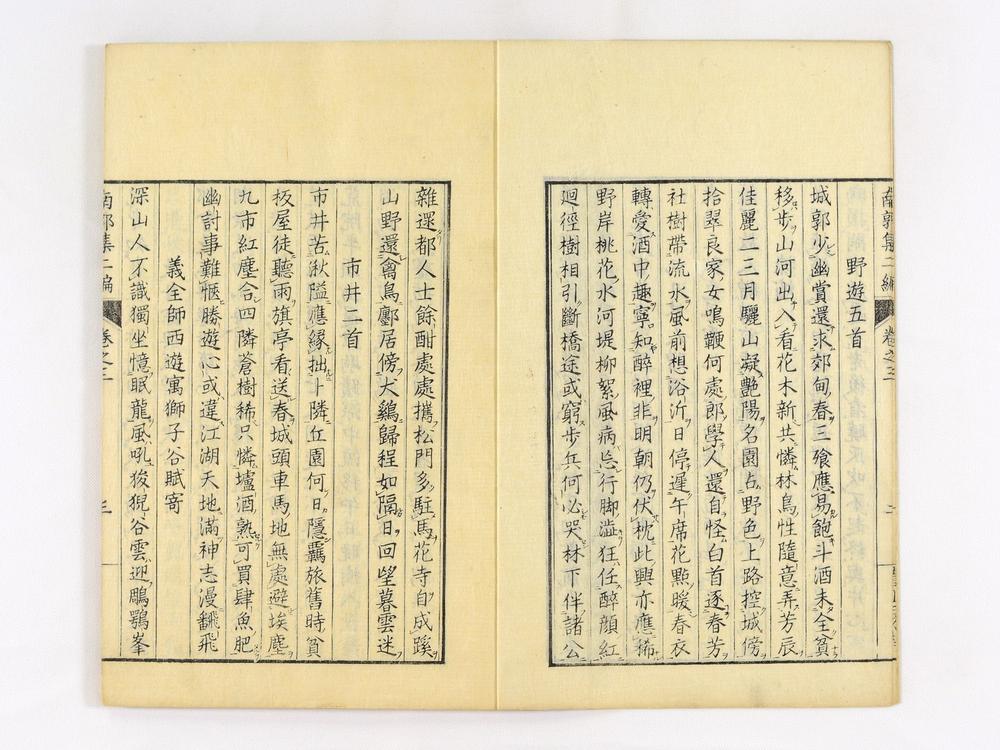 南郭集二編 卷之三
野遊五首
城郭少幽賞還求郊甸春三飡應易飽斗酒未全貧
移步山河出入看花木新共憐林鳥性隨意弄芳辰
佳麗二三月驪山凝艷陽名園占野色上路控城傍
拾翠良家女鳴鞭何處郎學人還自怪白首逐春芳
社樹帶流水風前想浴沂日停遲午席花點暖春衣
轉愛酒中趣寧知醉裡非明朝仍伏枕此興亦應稀
野岸桃花水河堤柳絮風病忘行脚澁狂任醉顏紅
廻徑樹相引斷橋途或窮步兵何必哭林下伴諸公
雜遝都人士餘酣處處攜松門多駐馬花寺自成蹊
山野還禽鳥鄽居傍犬鷄歸程如隔日回望暮雲迷
市井二首
市井苦湫隘應緣拙卜隣丘園何日隱羈旅舊時貧
板屋徒聽雨旗亭看送春城頭車馬地無處避埃塵
九市紅塵合四隣蒼樹稀只憐壚酒熟可買肆魚肥
幽討事難愜勝遊心或違江湖天地滿神志漫飜飛
義全師西遊寓獅子谷賦寄
深山人不識獨坐憶眠龍風吼狻猊谷雲迎鵰鶚峯
南郭集二編 卷之三 三